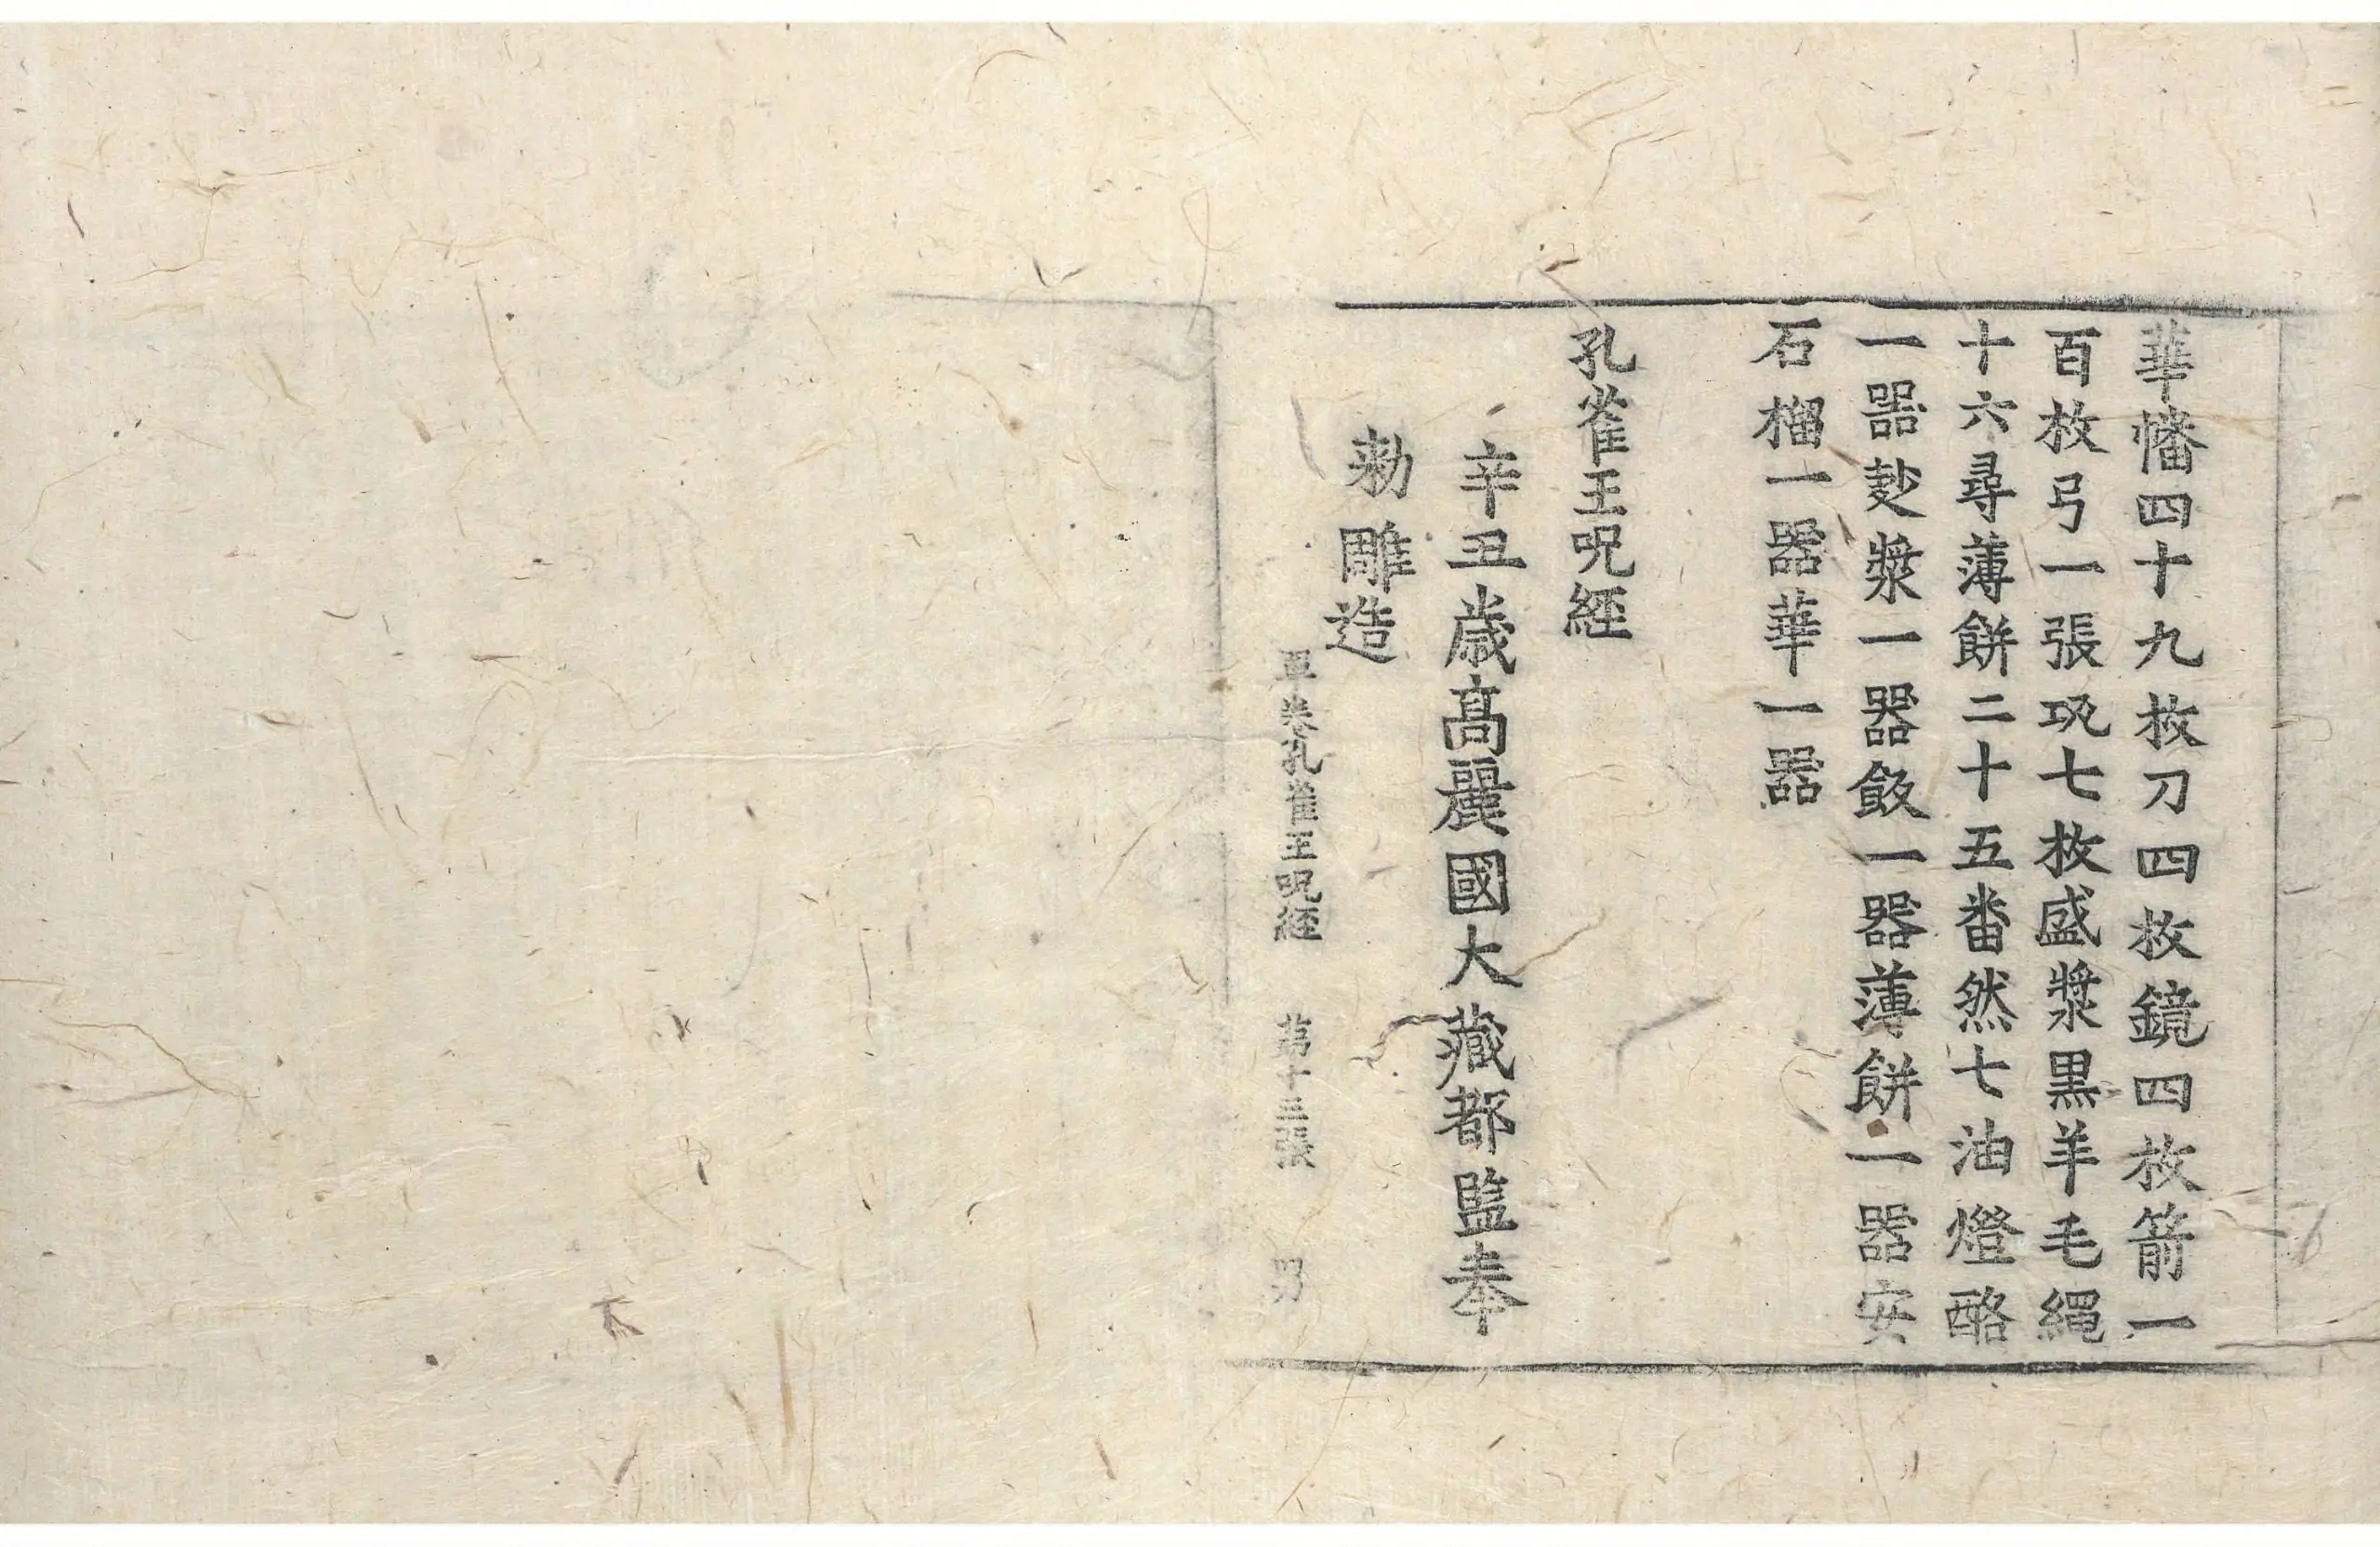 華幡四十九枚刀四枚鏡四枚箭一
百枚弓一張瓨七枚盛漿黒羊毛繩
十六尋薄餅二十五番然七油燈酪
一器麨漿一器飯一器薄餅一器安
石榴一器華一器
孔雀王呪經
辛丑歲高麗國大藏都監奉
勅雕造
單卷孔雀王呪經 第十三張 男